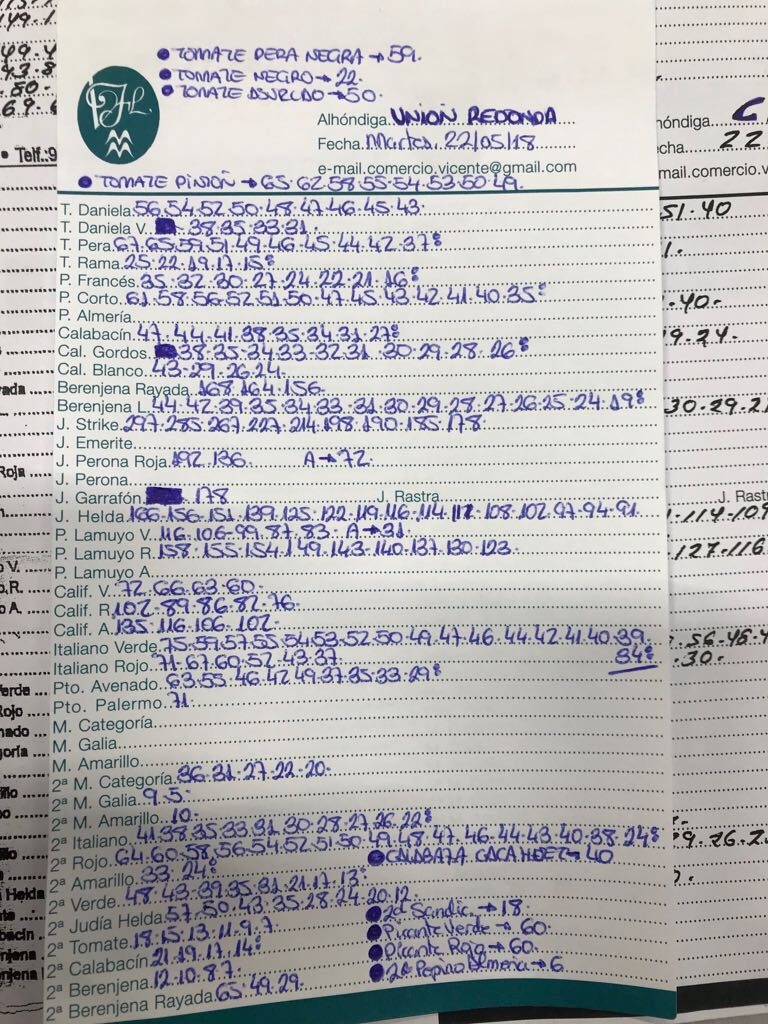 • TOMATE PERA NEGRA → 59.
• TOMATE NEGRO → 22.
• TOMATE ASURCADO → 50.
Alhóndiga UNION REDONDA
Fecha Martes 22/05/18
e-mail.comercio.vicente@gmail.com
• TOMATE PINION → 65.62.58.55.54.53.50.49.
T. Daniela 56.54.52.50.48.47.46.45.43.
T. Daniela V. 38.35.33.31.
T. Pera 67.65.59.51.49.46.45.44.42.37
T. Rama 25.22.19.17.15
P. Francés 35.32.30.27.24.22.21.16
P. Corto 61.58.56.52.51.50.47.45.43.42.41.40.35
P. Almería
Calabacín 47.44.41.38.35.34.31.27
Cal. Gordos 38.35.34.33.32.31.30.29.28.26
Cal. Blanco 43.29.26.24.
Berenjena Rayada 168.164.156
Berenjena L. 44.42.39.35.34.33.31.30.29.28.27.26.25.24.19
J. Strike 297.285.267.227.214.198.190.185.178
J. Emerite
J. Perona Roja 192.136. A→72
J. Perona
J. Garrafón 178 J. Rastra
J. Helda 166.156.151.139.125.122.119.116.114.112.108.102.97.94.91
P. Lamuyo V. 116.106.99.87.83. A→31
P. Lamuyo R. 158.155.154.149.143.140.137.130.123
P. Lamuyo A.
Calif. V. 72.66.63.60.
Calif. R. 102.89.86.82.76
Calif. A. 135.116.106.102
Italiano Verde 75.59.57.55.54.53.52.50.49.47.46.44.42.41.40.39
34
Italiano Rojo 71.67.60.52.43.37
Pto. Avenado 63.55.46.42.49.37.35.33.29
Pto. Palermo 71.
M. Categoría
M. Galia
M. Amarillo
2ª M. Categoría 36.31.27.22.20.
2ª M. Galia 9.5.
2ª M. Amarillo 10.
2ª Italiano 41.38.35.33.31.30.28.27.26.22
2ª Rojo 64.60.58.56.54.52.51.50.49.48.47.46.44.43.40.38.24
2ª Amarillo 33.24 • CALABAZA CACAHUET → 40
2ª Verde 48.43.39.35.31.21.17.13
2ª Judía Helda 57.50.43.35.28.24.20.12
2ª Tomate 18.15.13.11.9.7 • 2ª Sandia → 18.
2ª Calabacín 21.19.17.14 • Picante Verde → 60.
2ª Berenjena 12.10.8.7. • Picante Rojo → 60.
2ª Berenjena Rayada 65.49.29. • 2ª Pepino Almeria → 6